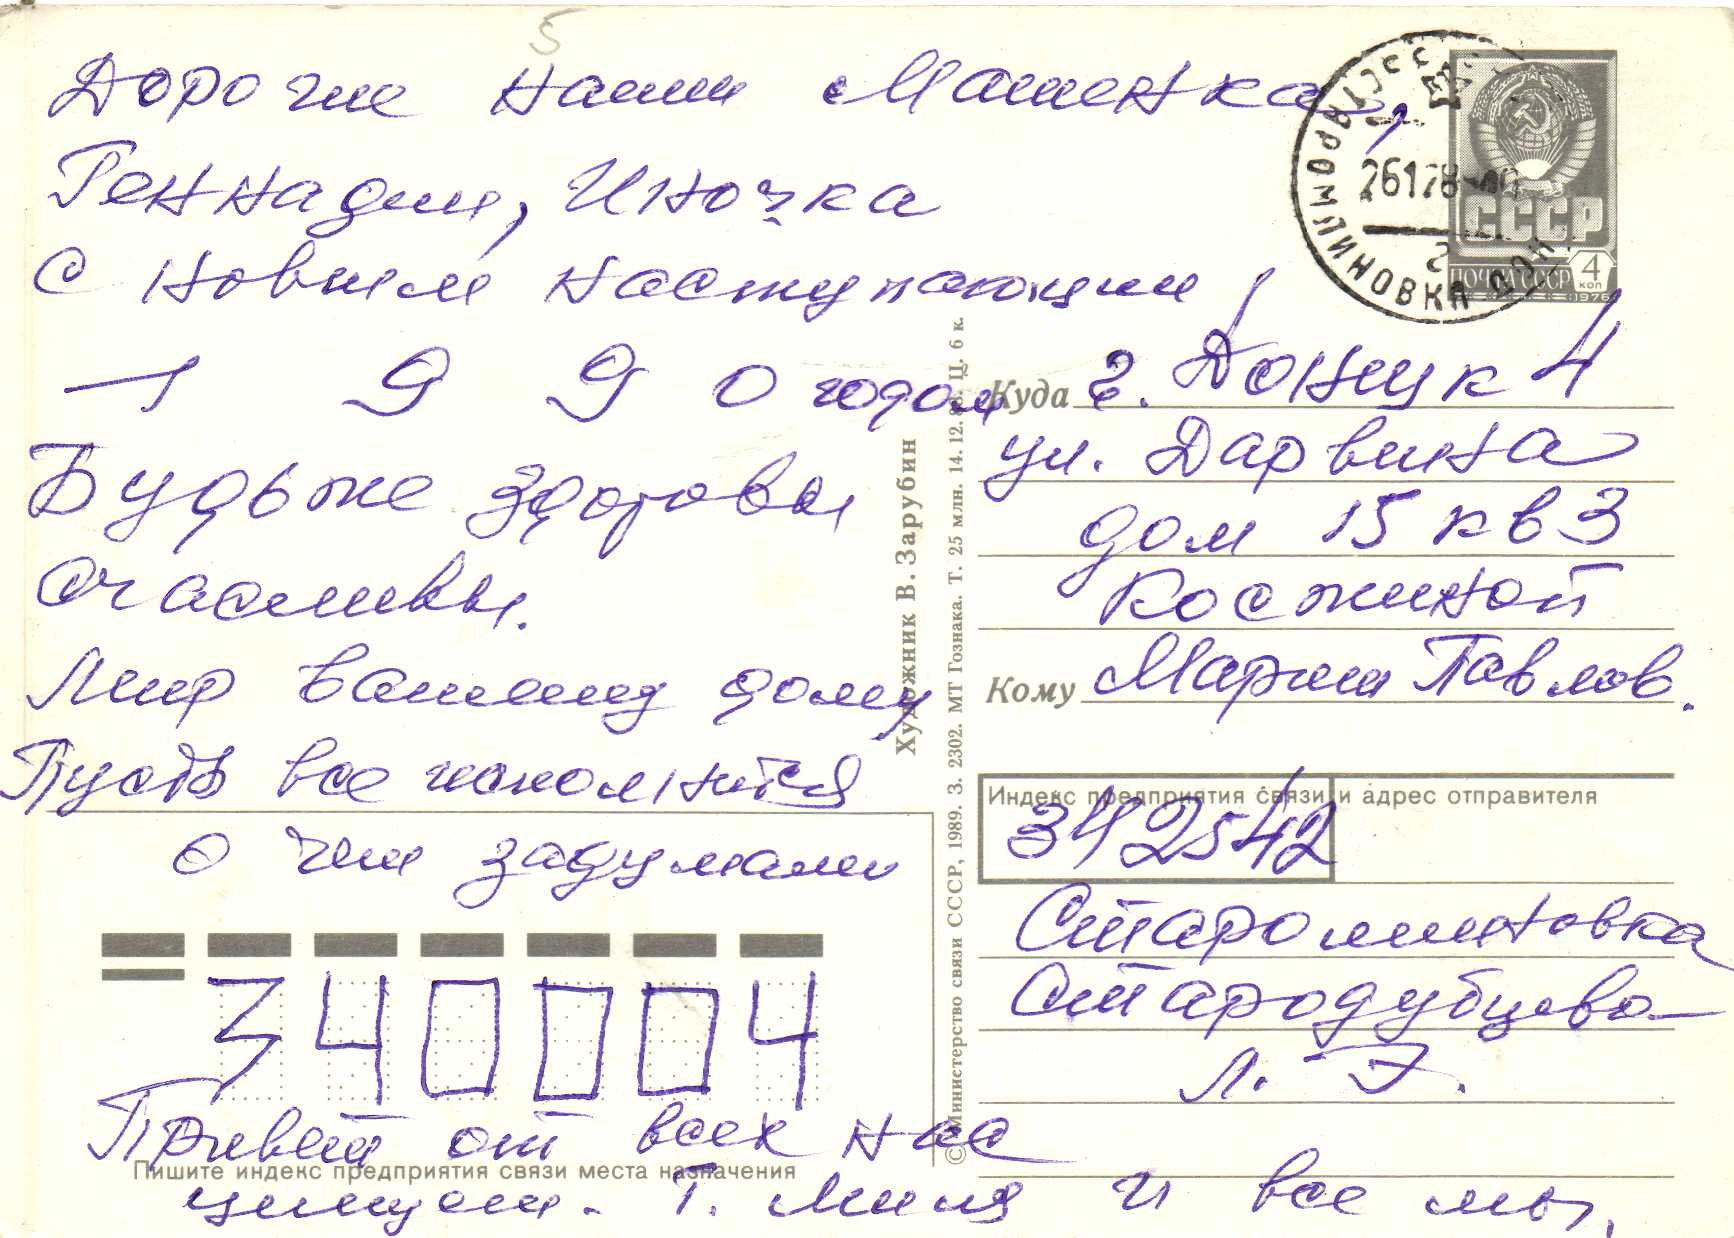 5
Дорогие наши Машенька,
Геннадий, Иночка
С новым наступающим
1990 годом!
Будьте здоровы
счастливы.
Мир вашему дому
Пусть все исполнится
о чем задумали
340004
Привет от всех нас
целуем. Т. Миля и все мы.
Пишите индекс предприятия связи места назначения
Художник В. Зарубин
© Министерство связи СССР, 1989. З. 2302. МТ Гознака. Т. 25 млн. 14. 12. Ц. 6 к.
СТАРОМИХНОВКА ДОН
2
СССР
ПОЧТА СССР
4
КОП
1976
Куда г. Донецк 4
ул. Дарвина
дом 15 кв 3
Костиной
Кому Марии Павлов.
Индекс предприятия связи и адрес отправителя
342542
Старомихновка
Стародубцева
Л. Э.